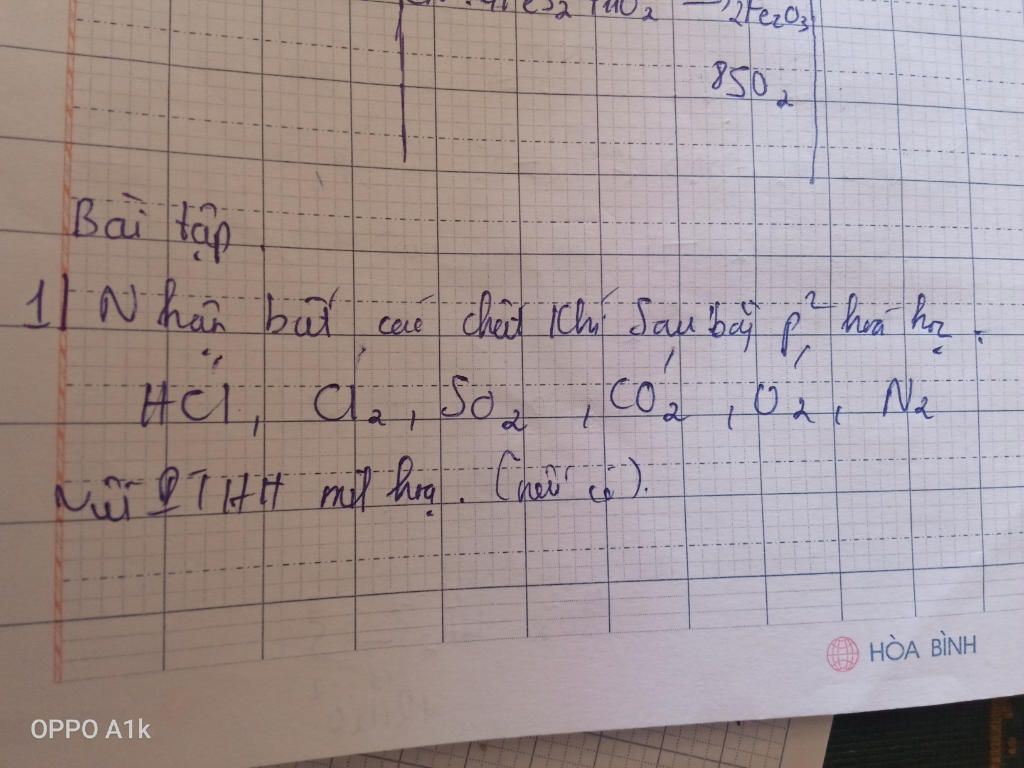 4FeS2 + 11O2 → 2Fe2O3
8SO2
Bài tập
1| Nhận biết các chất khí sau bằg p² hoá học.
HCl, Cl2, SO2, CO2, O2, N2
Viết PTHH minh hoạ. (nếu có).
HÒA BÌNH
OPPO A1k